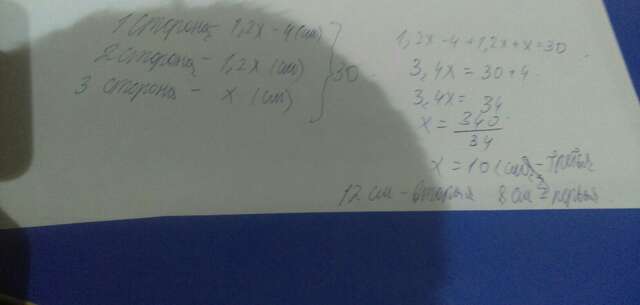 1 сторона - 1,2х - 4 (см)
2 сторона - 1,2х (см)
3 сторона - х (см)
30
1,2х - 4 + 1,2х + х = 30
3,4х = 30 + 4
3,4х = 34
х = 340
34
х = 10 (см) - третья
12 см - вторая 8 см - первая